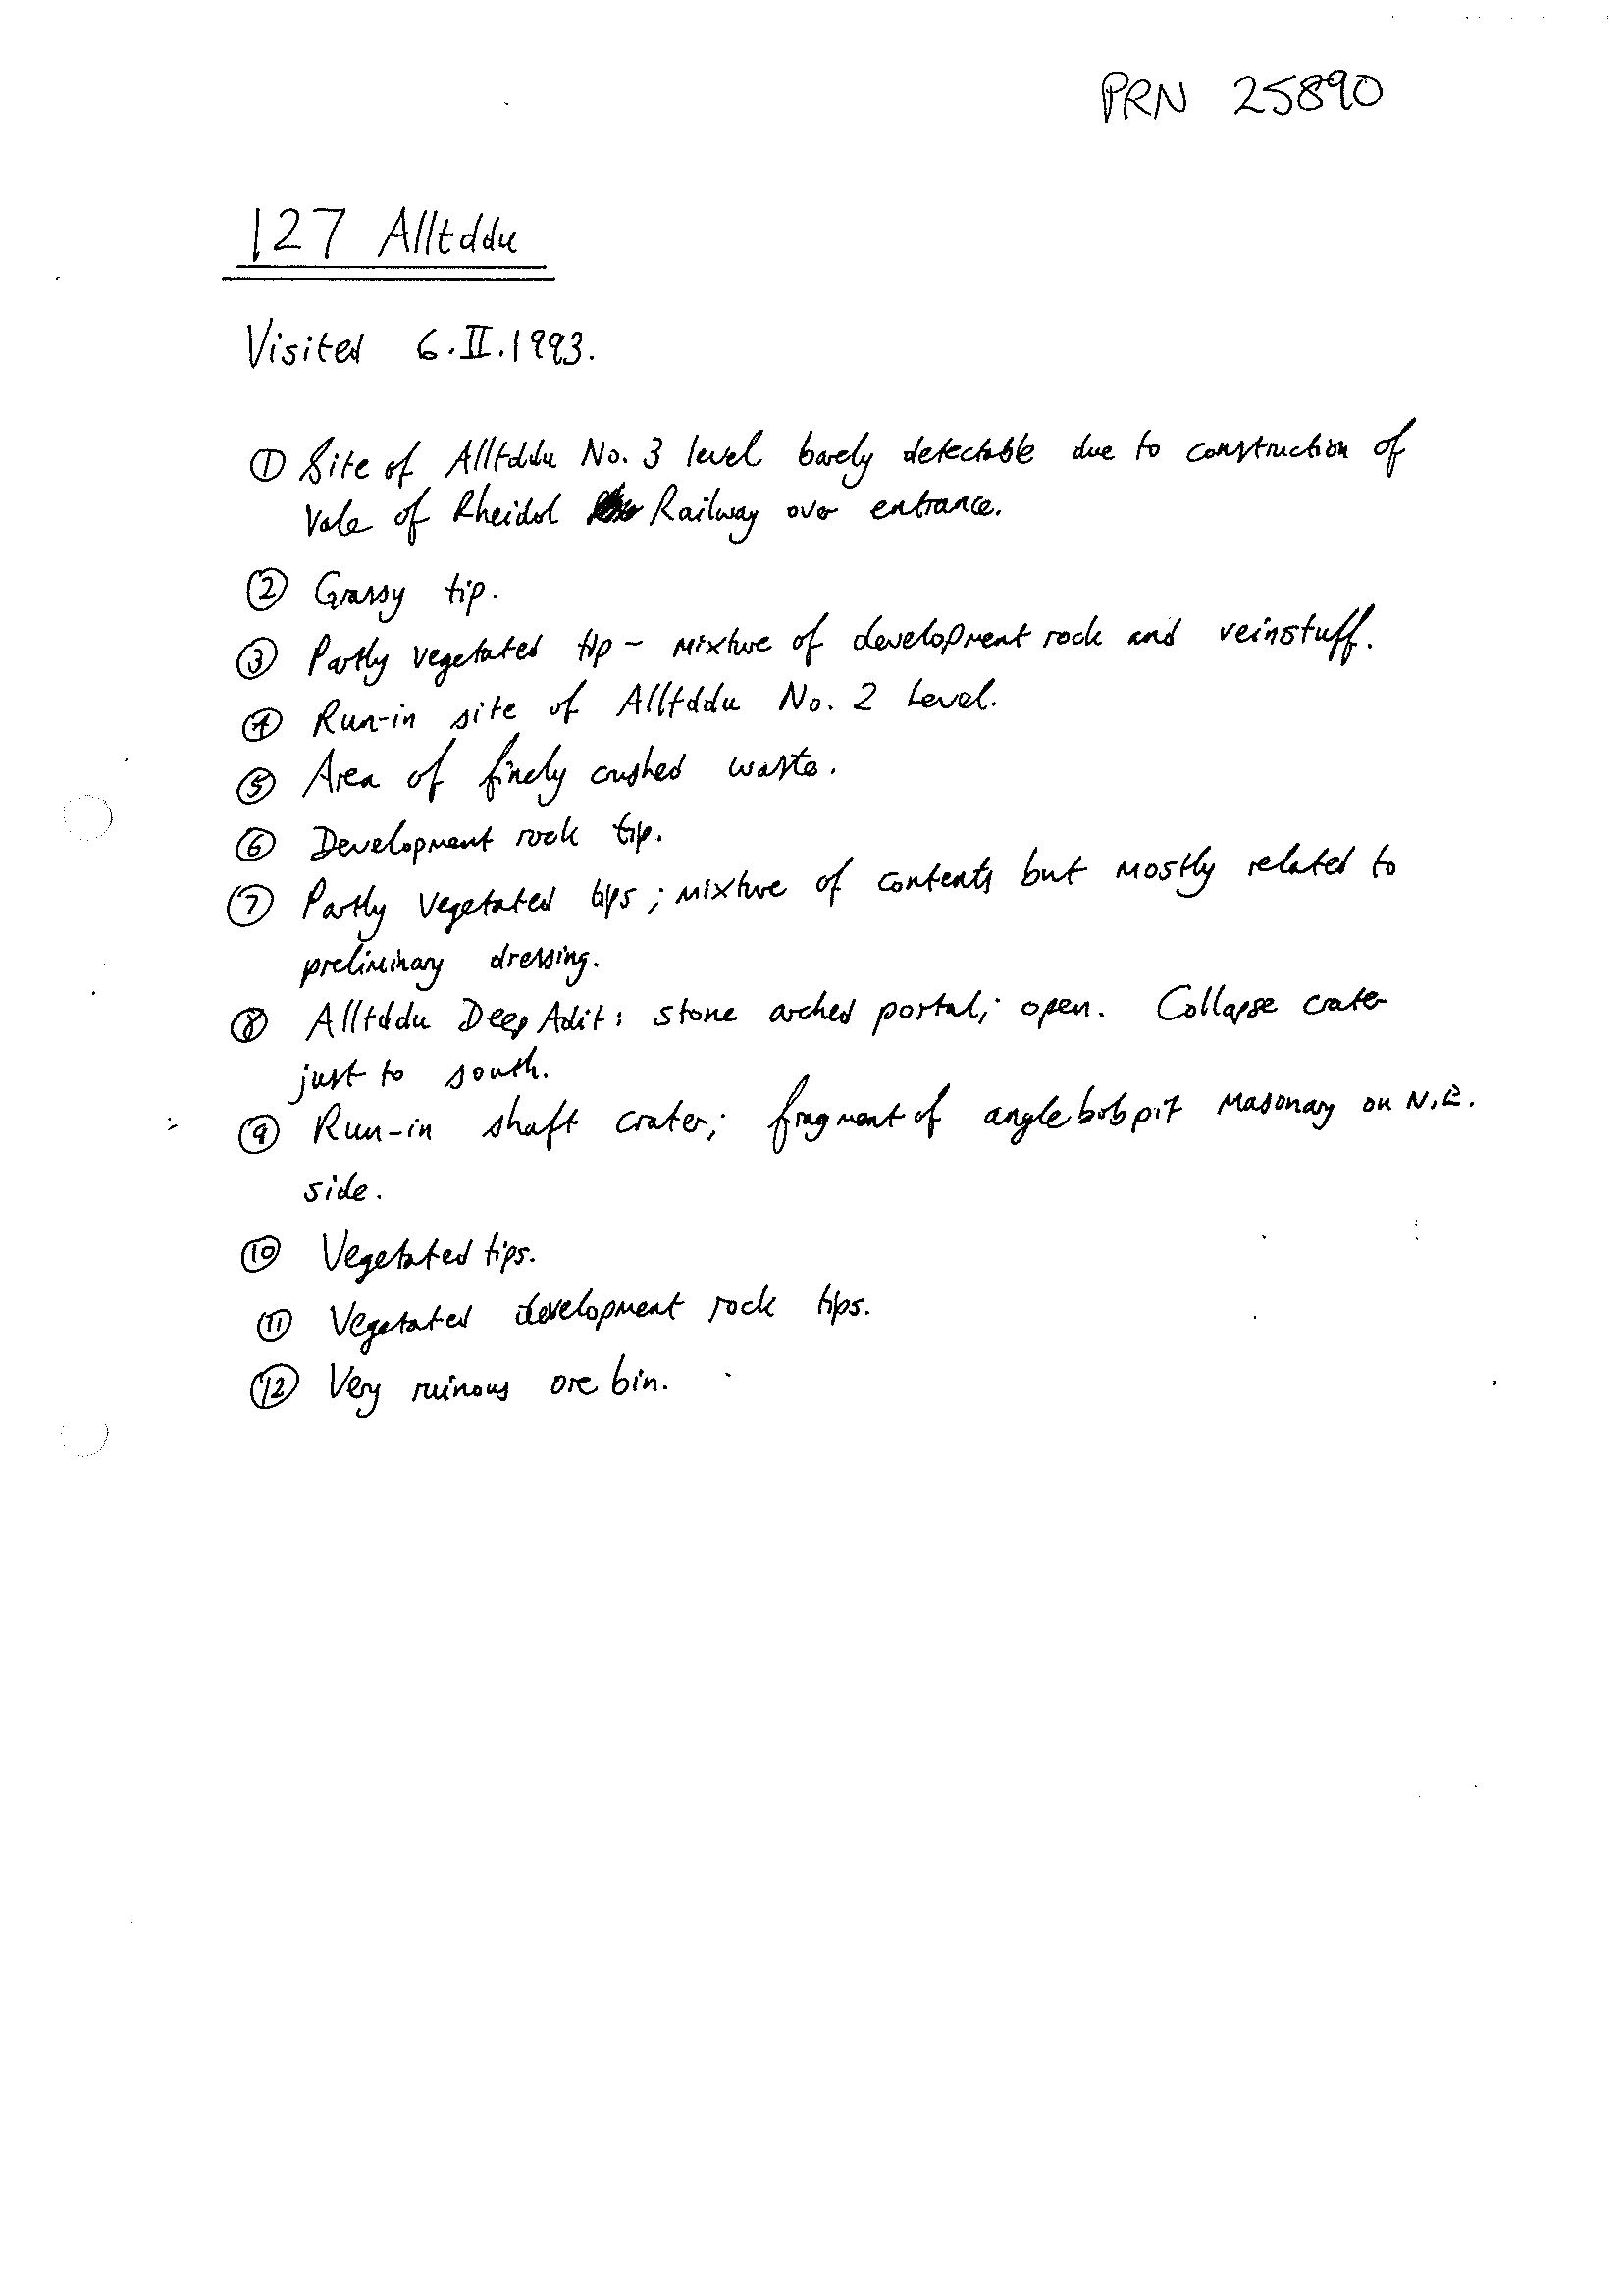 PRN 25890
127 Alltddu
Visited 6.II.1993.
① Site of Alltddu No. 3 level barely detectable due to construction of
Vale of Rheidol Railway over entrance.
② Grassy tip.
③ Partly vegetated tip - mixture of development rock and veinstuff.
④ Run-in site of Alltddu No. 2 Level.
⑤ Area of finely crushed waste.
⑥ Development rock tip.
⑦ Partly vegetated tips; mixture of contents but mostly related to
preliminary dressing.
⑧ Alltddu Deep Adit: stone arched portal; open. Collapse crater
just to south.
⑨ Run-in shaft crater; fragment of angle bob pit masonary on N.E.
side.
⑩ Vegetated tips.
⑪ Vegetated development rock tips.
⑫ Very ruinous ore bin.